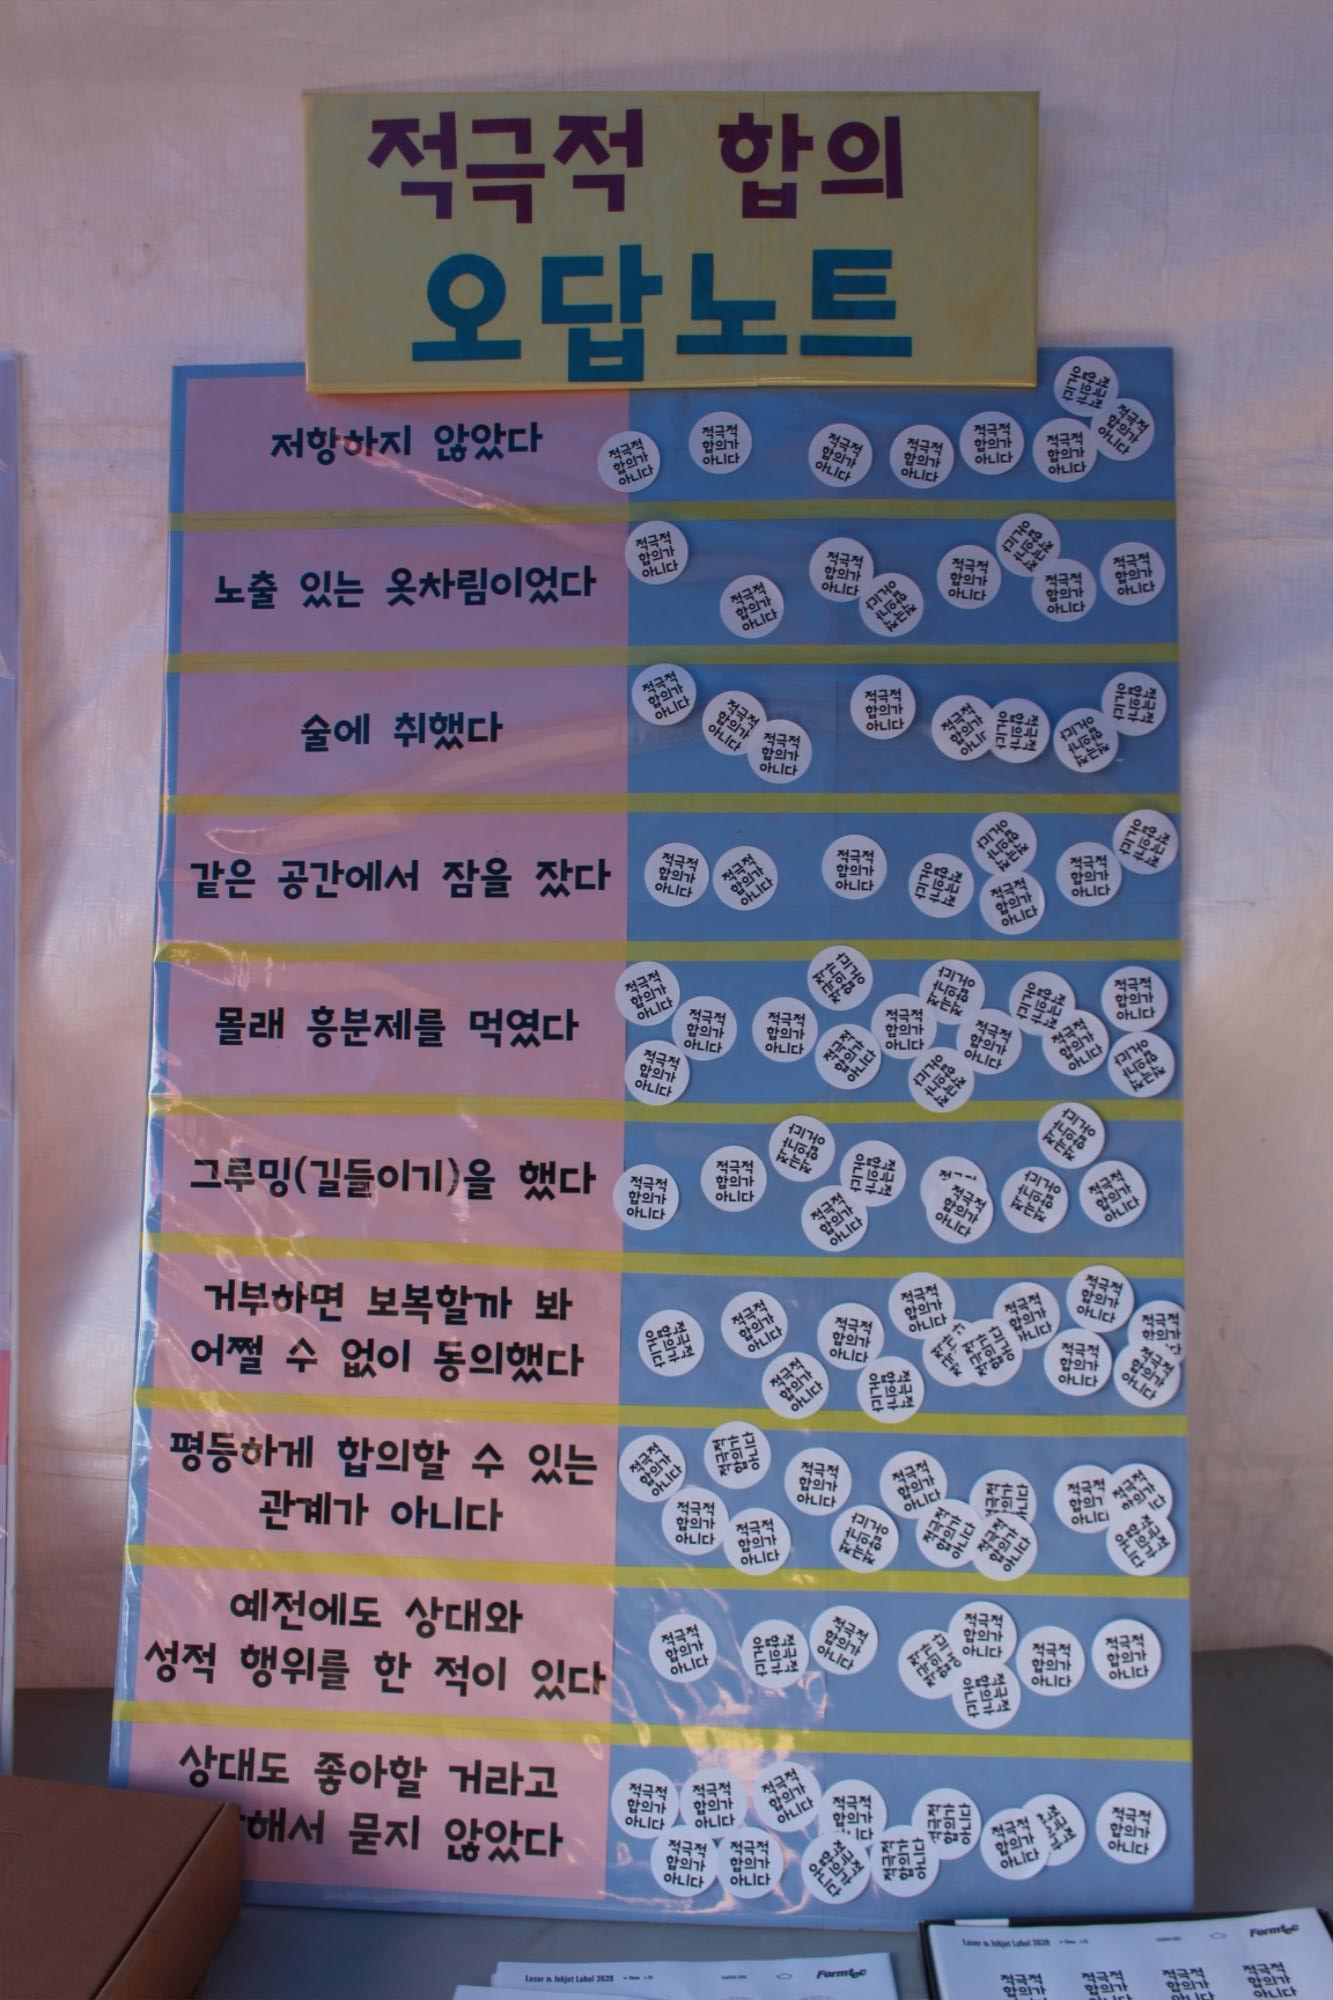 적극적 합의
오답노트
저항하지 않았다
노출 있는 옷차림이었다
술에 취했다
같은 공간에서 잠을 잤다
몰래 흥분제를 먹였다
그루밍(길들이기)을 했다
거부하면 보복할까 봐
어쩔 수 없이 동의했다
평등하게 합의할 수 있는
관계가 아니다
예전에도 상대와
성적 행위를 한 적이 있다
상대도 좋아할 거라고
묻지 않았다
적극적
합의가
아니다
Laser & Inkjet Label 3639
Formtec
Laser & Inkjet Label 3639
Formtec
적극적 적극적 적극적 적극적